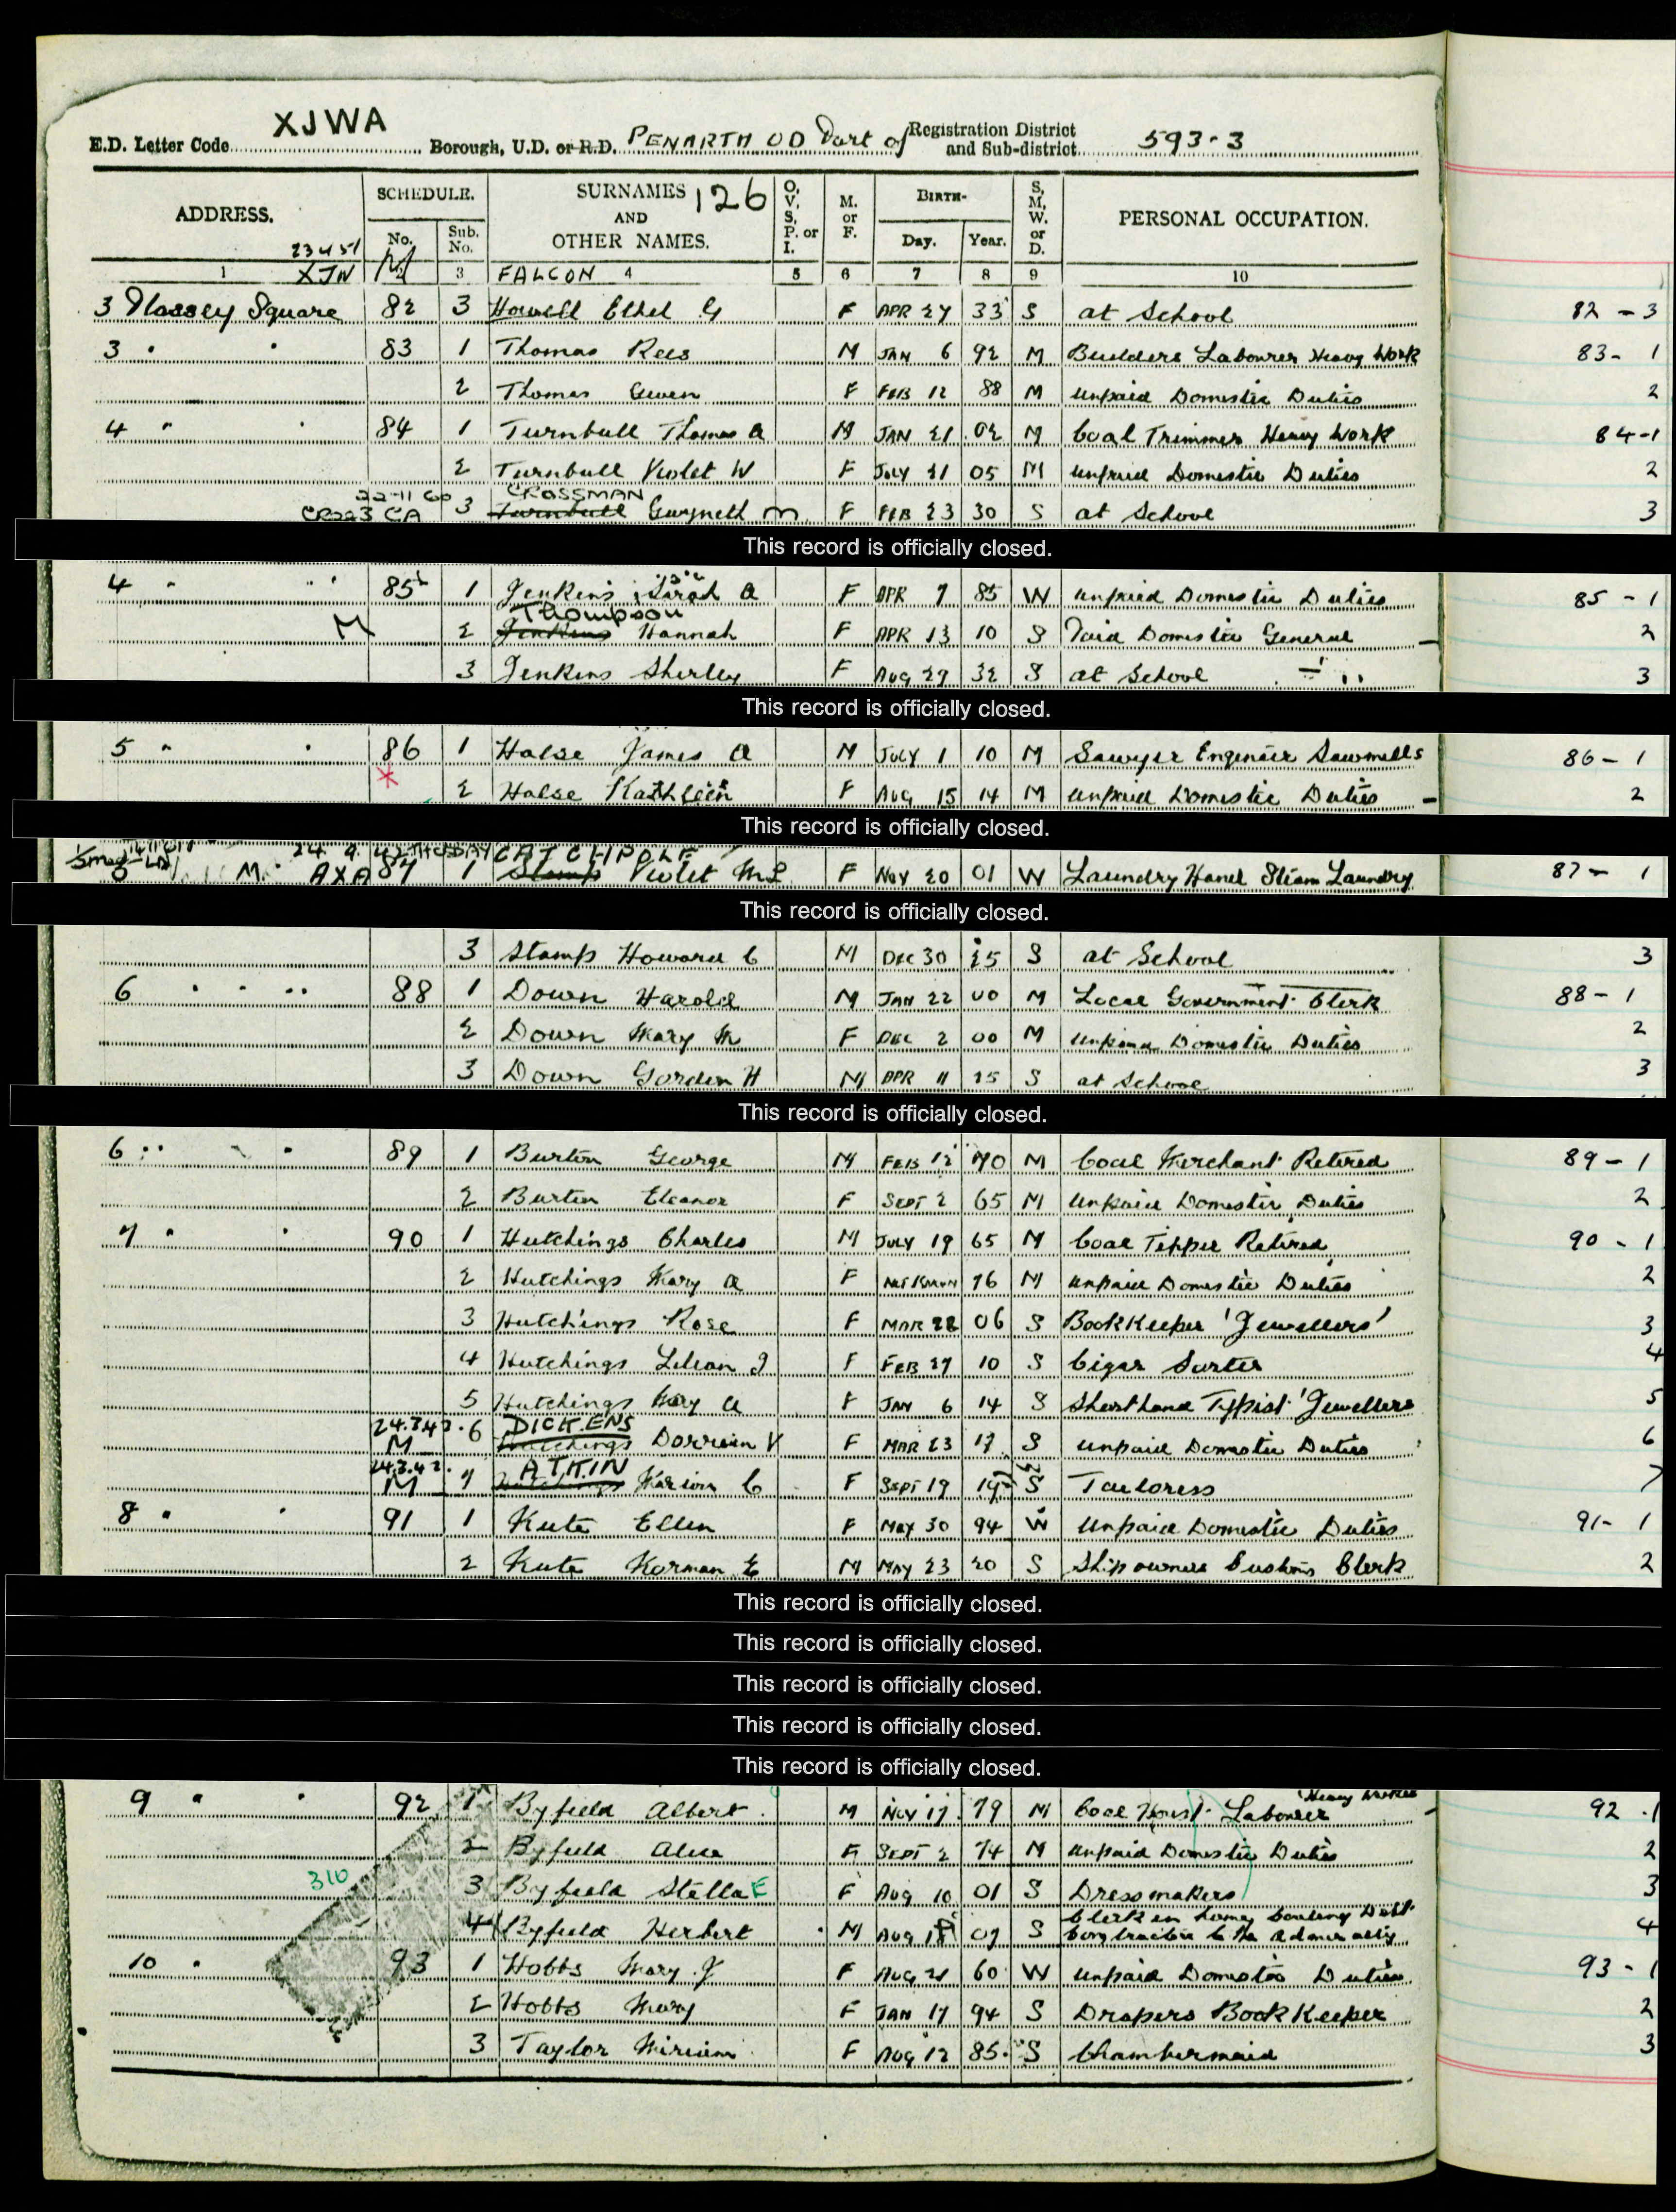 XJWA
E.D. Letter Code Borough, U.D. or R.D. PENARTH UD Part of Registration District and Sub-district 593-3
ADDRESS. SCHEDULE. No. Sub. No. SURNAMES AND OTHER NAMES. 126 O, V, S, P. or I. M. or F. BIRTH- Day. Year. S, M, W. or D. PERSONAL OCCUPATION.
23 4 51
1 XJW M 2 3 FALCON 4 5 6 7 8 9 10
3 Plassey Square 82 3 Howell Ethel G F APR 27 33 S at School 82 - 3
3 " " 83 1 Thomas Rees M JAN 6 92 M Builders Labourer Heavy Work 83- 1
2 Thomas Gwen F FEB 12 88 M Unpaid Domestic Duties 2
4 " " 84 1 Turnbull Thomas A M JAN 21 02 M Coal Trimmer Heavy Work 84-1
2 Turnbull Violet W F JULY 21 05 M Unpaid Domestic Duties 2
22-11 60 CROSSMAN
CR223 CA 3 Turnbull Gwyneth M F FEB 23 30 S at School 3
This record is officially closed.
4 " " 85 1 Jenkins Sarah A F APR 7 85 W Unpaid Domestic Duties 85 - 1
Thompson
M 2 Jenkins Hannah F APR 13 10 S Paid Domestic General 2
3 Jenkins Shirley F AUG 29 32 S at School 3
This record is officially closed.
5 " " 86 1 Halse James A M JULY 1 10 M Sawyer Engineer Sawmills 86 - 1
2 Halse Kathleen F AUG 15 14 M Unpaid Domestic Duties 2
This record is officially closed.
24. 9. 42 CATCHPOLE
M. AXA 87 1 Stamp Violet M L F NOV 20 01 W Laundry Hand Steam Laundry 87 - 1
This record is officially closed.
3 Stamp Howard C M DEC 30 25 S at School 3
6 " " 88 1 Down Harold M JAN 22 00 M Local Government Clerk 88 - 1
2 Down Mary M F DEC 2 00 M Unpaid Domestic Duties 2
3 Down Gordon H M APR 11 25 S at School 3
This record is officially closed.
6 " " 89 1 Burton George M FEB 12 70 M Coal Merchant Retired 89 - 1
2 Burton Eleanor F SEPT 2 65 M Unpaid Domestic Duties 2
7 " " 90 1 Hutchings Charles M JULY 19 65 M Coal Tipper Retired 90 - 1
2 Hutchings Mary A F NOT KNOWN 76 M Unpaid Domestic Duties 2
3 Hutchings Rose F MAR 28 06 S Book Keeper 'Jewellers' 3
4 Hutchings Lilian I F FEB 27 10 S Cigar Sorter 4
5 Hutchings May A F JAN 6 14 S Shorthand Typist 'Jewellers 5
24.3.42 DICKENS
M 6 Hutchings Dorrien V F MAR 23 17 S Unpaid Domestic Duties 6
24.3.42. ATKIN
M 7 Hutchings Marion C F SEPT 19 19 S Tailoress 7
8 " " 91 1 Kute Ellen F MAY 30 94 W Unpaid Domestic Duties 91- 1
2 Kute Norman E M MAY 23 20 S Ship owners Customs Clerk 2
This record is officially closed.
This record is officially closed.
This record is officially closed.
This record is officially closed.
This record is officially closed.
9 " " 92 1 Byfield Albert M NOV 17 79 M Coal Hoist Labourer Heavy Worker 92 - 1
2 Byfield Alice F SEPT 2 74 M Unpaid Domestic Duties 2
310 3 Byfield Stella E F AUG 10 01 S Dressmakers 3
4 Byfield Herbert M AUG 18 07 S Clerk in 4
to the Admiralty
10 " 93 1 Hobbs Mary J F AUG 21 60 W Unpaid Domestic Duties 93 - 1
2 Hobbs Mary F JAN 17 94 S Drapers Book Keeper 2
3 Taylor Miriam F AUG 12 85 S Chambermaid 3